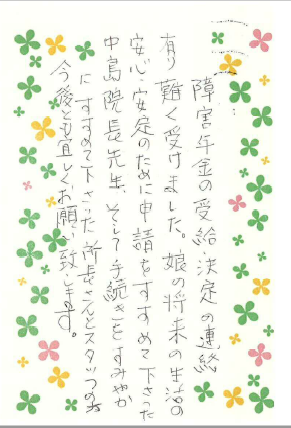 障害年金の受給決定の連絡
有り難く受けました。娘の将来の生活の
安心・安定のために申請をすすめて下さった
中島院長先生、そして手続きをすみやか
にすすめて下さった所長さんとスタッフの方
今後とも宜しくお願い致します。